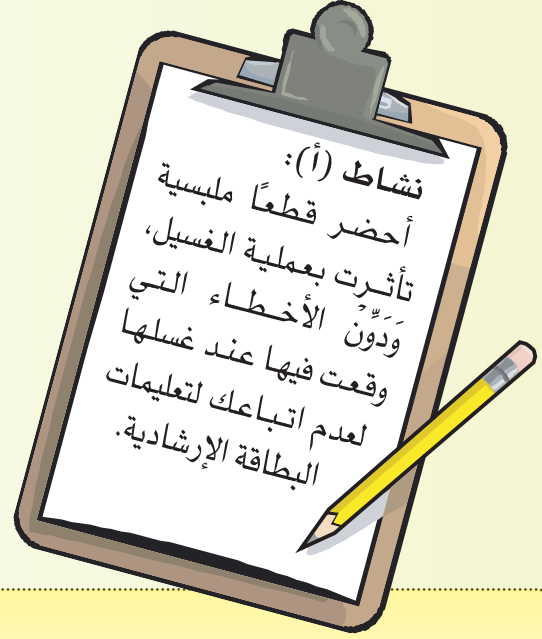 نشاط (أ):
أحضر قطعًا ملبسية
تأثرت بعملية الغسيل،
وَدَوِّنْ الأخطاء التي
وقعت فيها عند غسلها
لعدم اتباعك لتعليمات
البطاقة الإرشادية.